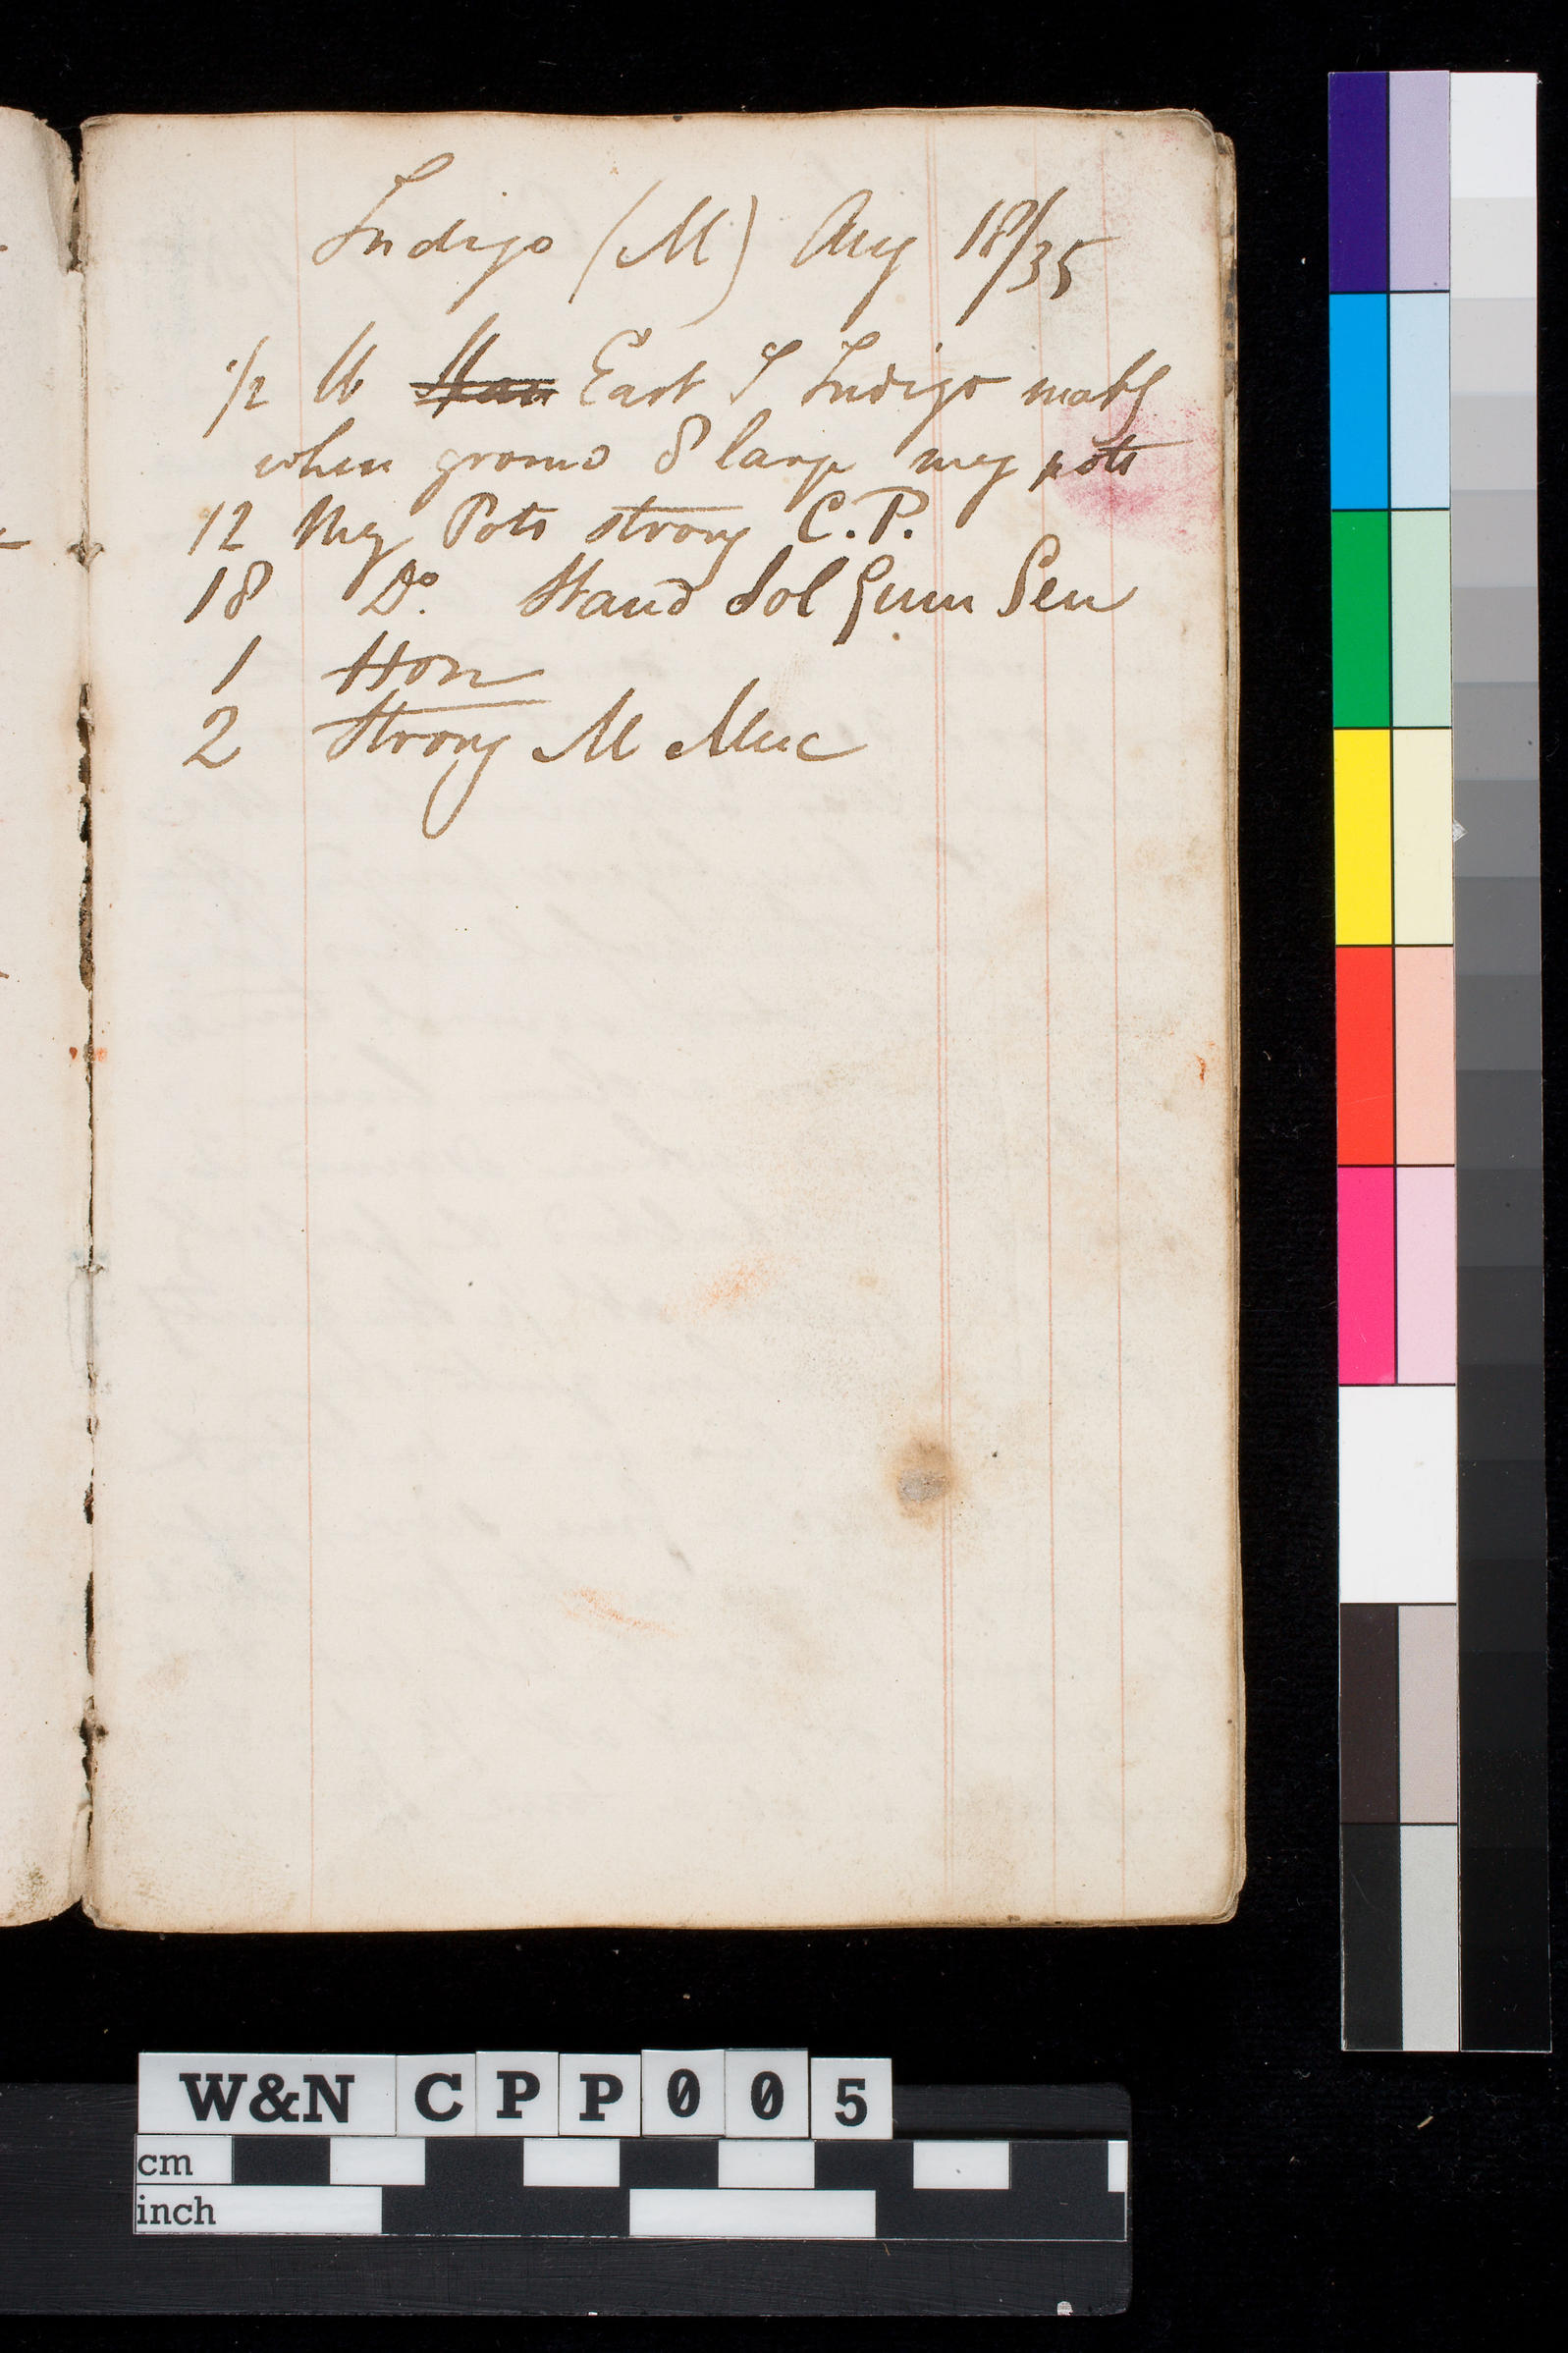 Indigo (M) Aug 18/35
1/2 lb East I Indigo makg
when ground 8 large meg pots
12 Meg Pots strong C.P.
18 Do. Stand Sol Gum Sen
1 Hon
2 Strong M Muc
W&N CPP005
cm
inch